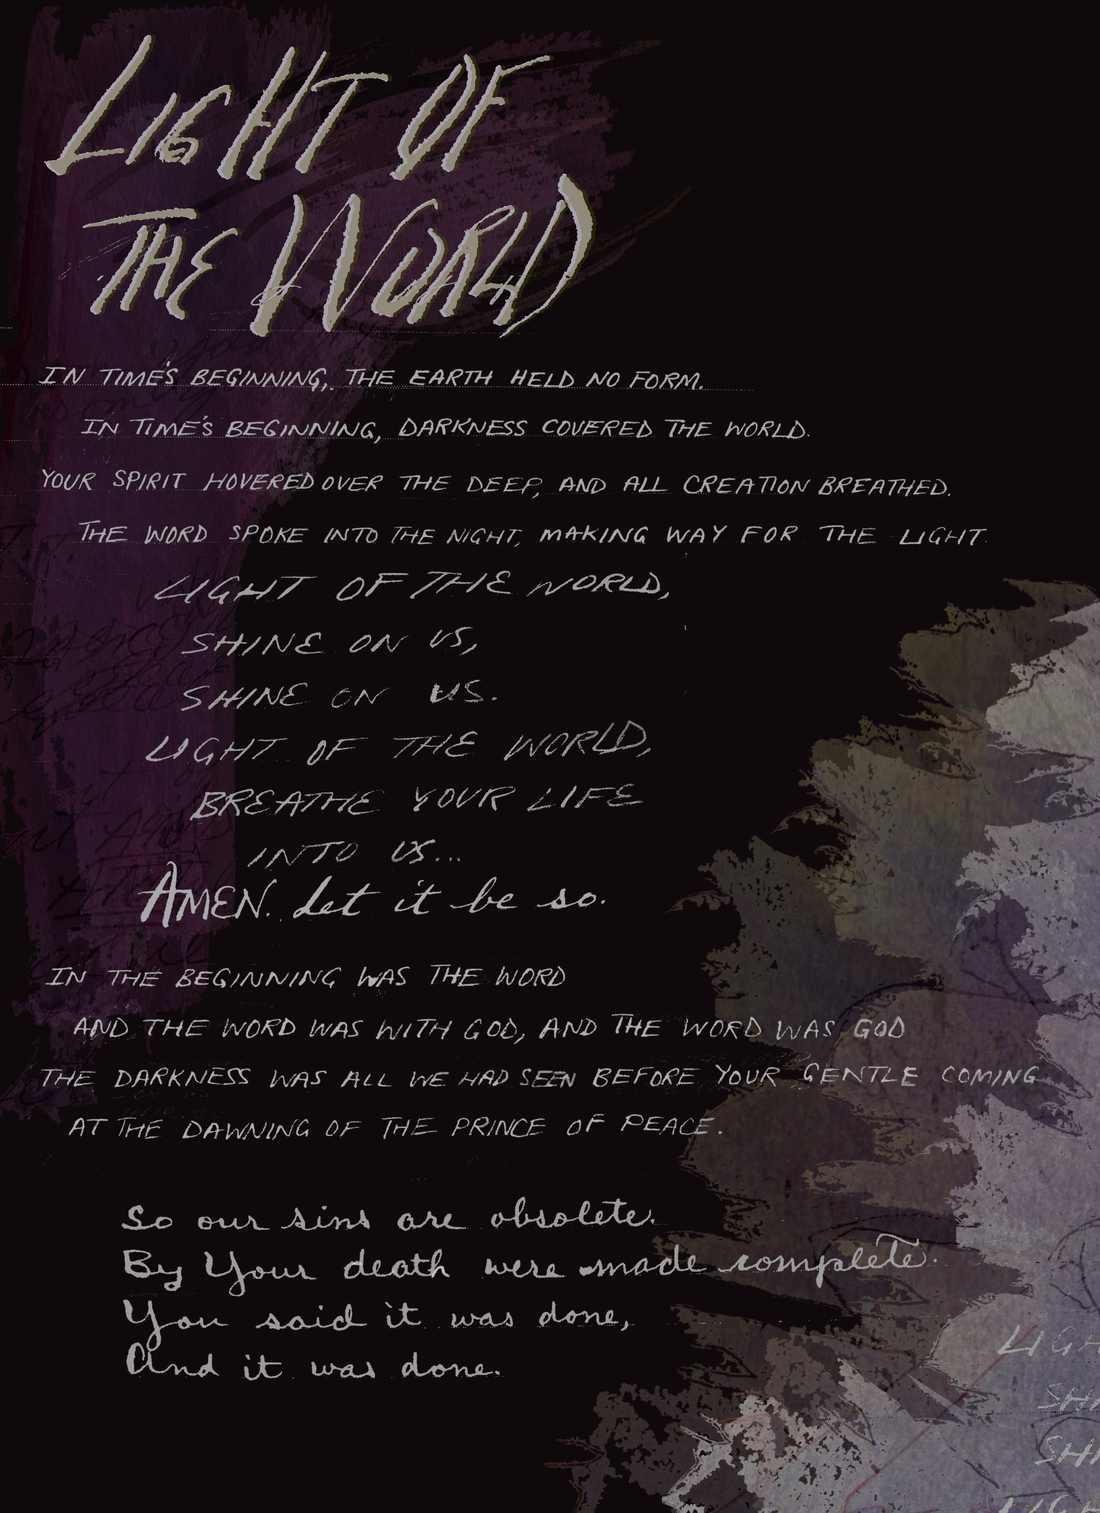 LIGHT OF
THE WORLD
IN TIME'S BEGINNING, THE EARTH HELD NO FORM.
IN TIME'S BEGINNING, DARKNESS COVERED THE WORLD.
YOUR SPIRIT HOVERED OVER THE DEEP, AND ALL CREATION BREATHED.
THE WORD SPOKE INTO THE NIGHT, MAKING WAY FOR THE LIGHT.
LIGHT OF THE WORLD,
SHINE ON US,
SHINE ON US.
LIGHT OF THE WORLD,
BREATHE YOUR LIFE
INTO US...
AMEN. Let it be so.
IN THE BEGINNING WAS THE WORD
AND THE WORD WAS WITH GOD, AND THE WORD WAS GOD
THE DARKNESS WAS ALL WE HAD SEEN BEFORE YOUR GENTLE COMING
AT THE DAWNING OF THE PRINCE OF PEACE.
So our sins are obsolete.
By Your death were made complete.
You said it was done,
And it was done.
LIGH
SHI
SHI
LIGH